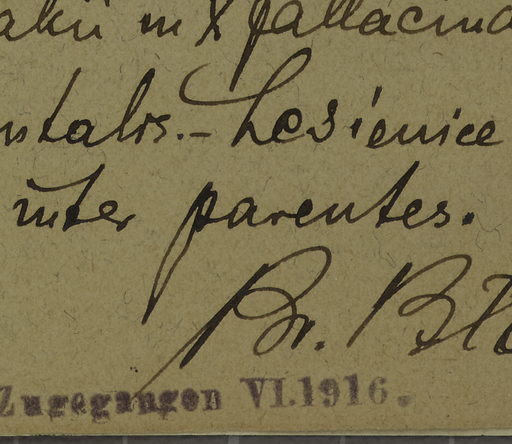 in X fallacina
ntalis. - Lesienice
inter parentes.
Br. Bł
Zugegangen VI.1916.